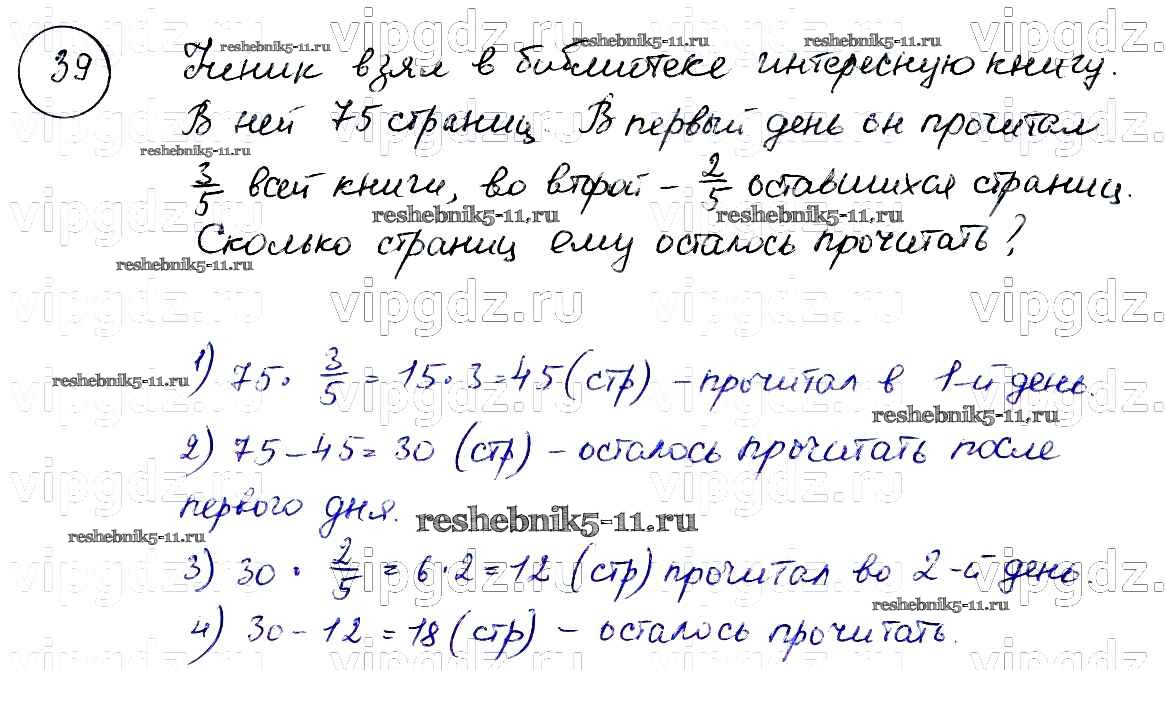 39
Ученик взял в библиотеке интересную книгу.
В ней 75 страниц. В первый день он прочитал
3/5 всей книги, во второй – 2/5 оставшихся страниц.
Сколько страниц ему осталось прочитать?
1) 75 · 3/5 = 15 · 3 = 45 (стр) – прочитал в 1-й день.
2) 75 – 45 = 30 (стр) – осталось прочитать после
первого дня.
3) 30 · 2/5 = 6 · 2 = 12 (стр) прочитал во 2-й день.
4) 30 – 12 = 18 (стр) – осталось прочитать.
reshebnik5-11.ru
vipgdz.ru